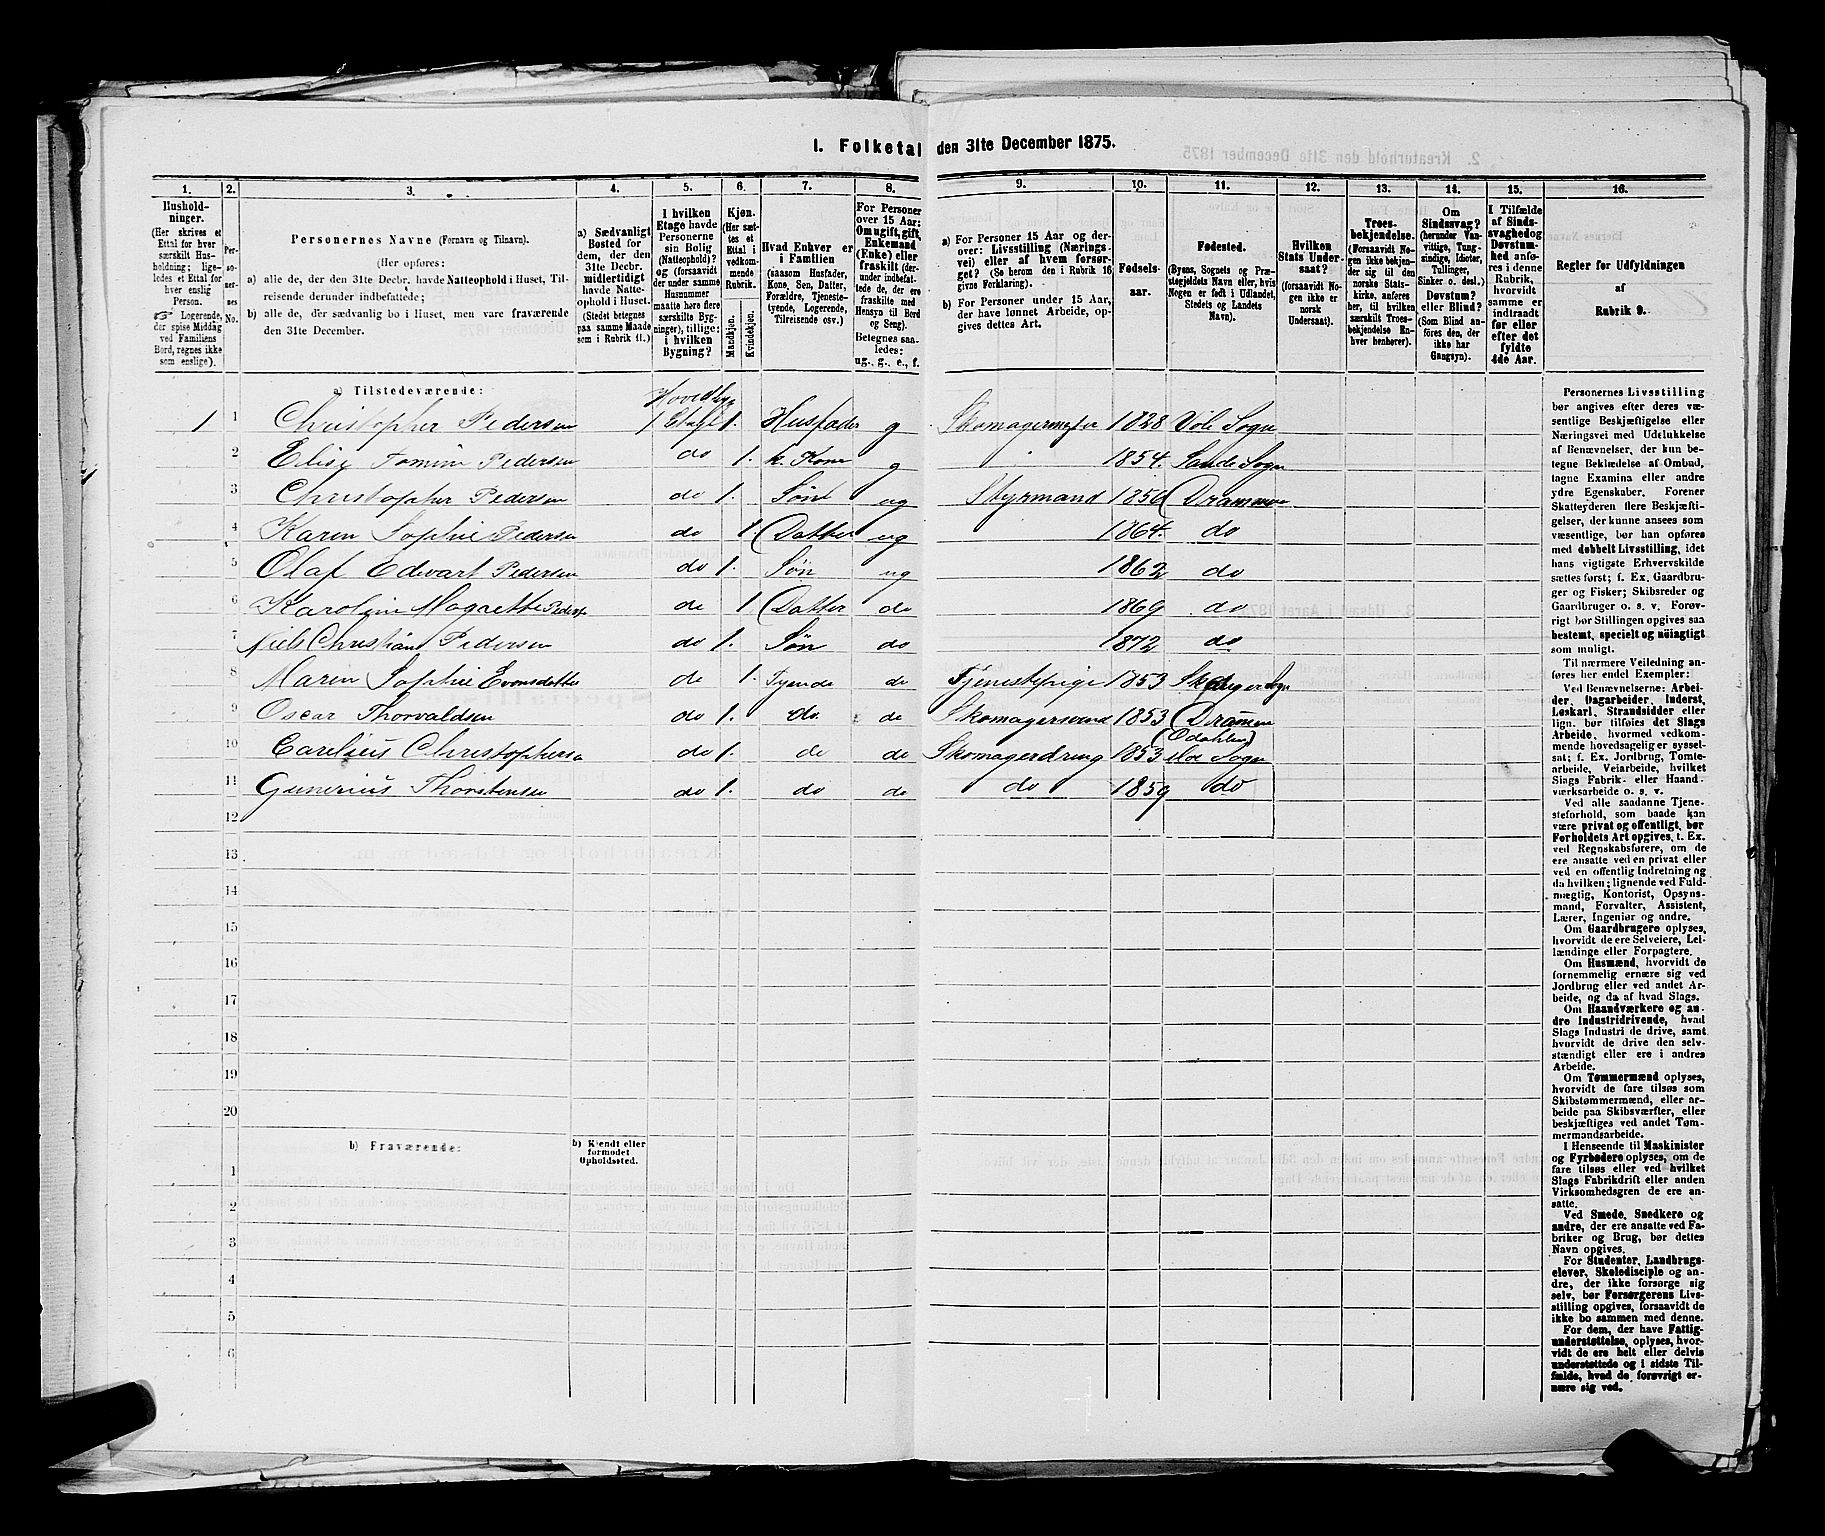 1. Folketal den 31te December 1875.
1. 2. 3. 4. 5. 6. 7. 8. 9. 10. 11. 12. 13. 14. 15. 16.
Husholdninger.
(Her skrives et Ettal for hver særskilt Husholdning; ligeledes et Ettal for hver enslig Person.
Logerende, der spise Middag ved Familiens Bord, regnes ikke som enslige).
Personernes No.
Personernes Navne (Fornavn og Tilnavn).
(Her opføres:
a) alle de, der den 31te Decbr. havde Natteophold i Huset, Tilreisende derunder indbefattede;
b) alle de, der sædvanlig bo i Huset, men vare fraværende den 31te December.
a) Sædvanligt Bosted for dem, der den 31te Decbr. midlertidigt havde Natteophold i Huset.
(Stedet betegnes paa samme Maade som i Rubrik 11.)
I hvilken Etage havde Personerne sin Bolig (Natteophold)? og (forsaavidt der under samme Husnummer maatte høre flere særskilte Bygninger), tillige: i hvilken Bygning?
Kjøn.
(Her sættes et Ettal i vedkommende Rubrik.
Mandkjøn.
Kvindekjøn.
Hvad Enhver er i Familien
(saasom Husfader, Kone, Søn, Datter, Forældre, Tjenestetyende, Logerende, Tilreisende osv.)
For Personer over 15 Aar: Om ugift, gift, Enkemand (Enke) eller fraskilt (derunder indbefattede de, der ere fraskilte med Hensyn til Bord og Seng.)
Betegnes saaledes:
ug., g., e., f.
a) For Personer 15 Aar og derover: Livsstilling (Næringsvei) eller af hvem forsørget? (Se herom den i Rubrik 16 givne Forklaring).
b) For Personer under 15 Aar, der have lønnet Arbeide, opgives dettes Art.
Fødselsaar.
Fødested.
(Byens, Sognets og Præstegjeldets Navn eller, hvis Nogen er født i Udlandet, Stedets og Landets Navn).
Hvilken Stats Undersaat?
(forsaavidt Nogen ikke er norsk Undersaat).
Troesbekjendelse.
(Forsaavidt Nogen ikke bekjender sig til den norske Statskirke, anføres her, til hvilken særskilt Troesbekjendelse Enhver henhører).
Om Sindssvag? (herunder Vanvittige, Tungsindige, Idioter, Tullinger, Sinker o. desl.) Døvstum? eller Blind?
(Som Blind anføres den, der ikke har Gangsyn).
I Tilfælde af Sindssvaghed og Døvstumhed anføres i denne Rubrik, hvorvidt samme er indtraadt før eller efter det fyldte 4de Aar.
Regler for Udfyldningen af Rubrik 9.
a) Tilstedeværende:
1 1 Christopher Pedersen 1 Etage 1. Husfader g Skomagermester 1828 Vole Sogn
2 Elise Pedersen do 1. h. Kone g 1854. Sande Sogn
3 Christopher Pedersen do 1. Søn ug Styrmand 1856 Drammen
4 Karen Sophie Pedersen do 1 Datter ug 1864. do
5 Olaf Edvart Pedersen do 1. Søn ug 1862 do
6 Karoline Magrette Peders do 1 Datter do 1869 do
7 Niels Christian Pedersen do 1. Søn do 1872 do
8 Maren Sophie Evensdatter do 1. Tyende do Tjenestepige 1853 Skoger Sogn
9 Oscar Thorvaldsen do 1. do. do Skomagersvend 1853 Drammen
(Odahlen)
10 Carelius Christophersen do 1. do do Skomagerdreng 1853 Sogn
11 Gunerius Thorstensen do 1. do do do 1859 do
12
13
14
15
16
17
18
19
20
b) Fraværende:
b) Kjendt eller formodet Opholdssted.
1
2
3
4
5
6
Personernes Livsstilling bør angives efter deres væsentlige Beskjæftigelse eller Næringsvei med Udelukkelse af Benævnelser, der kun betegne Beklædelse af Ombud, tagne Examina eller andre ydre Egenskaber. Forener Skatteyderen flere Beskjæftigelser, der kunne ansees som væsentlige, bør han opføres med dobbelt Livsstilling, idet hans vigtigste Erhvervskilde sættes først; f. Ex. Gaardbruger og Fisker; Skibsreder og Gaardbruger o. s. v. Forøvrigt bør Stillingen opgives saa bestemt, specielt og nöiagtigt som muligt.
Til nærmere Veiledning anføres her endel Exempler:
Ved Benævnelserne: Arbeider, Dagarbeider, Inderst, Løskarl, Strandsidder eller lign. bør tilføies det Slags Arbeide, hvormed vedkommende hovedsagelig er sysselsat; f. Ex. Jordbrug, Tomtearbeide, Veiarbeide, hvilket Slags Fabrik- eller Haandværksarbeide o. s. v.
Ved alle saadanne Tjenesteforhold, som baade kan være privat og offentligt, bør Forholdets Art opgives, t. Ex. ved Regnskabsførere, om de ere ansatte ved en privat eller ved en offentlig Indretning og da hvilken; lignende ved Fuldmægtig, Kontorist, Opsynsmand, Forvalter, Assistent, Lærer, Ingeniør og andre.
Om Gaardbrugere oplyses, hvorvidt de ere Selveiere, Leilændinge eller Forpagtere.
Om Husmænd, hvorvidt de fornemmelig ernære sig ved Jordbrug eller ved andet Arbeide, og da af hvad Slags.
Om Haandværkere og andre Industridrivende, hvad Slags Industri de drive, samt hvorvidt de drive den selvstændigt eller ere i andres Arbeide.
Om Tømmermænd oplyses, hvorvidt de fare tilsøs som Skibstømmermænd, eller arbeide paa Skibsværfter, eller beskjæftiges ved andet Tømmermandsarbeide.
I Henseende til Maskinister og Fyrbødere oplyses, om de fare tilsøs eller ved hvilket Slags Fabrikdrift eller anden Virksomhedsgren de ere ansatte.
Ved Smede, Snedkere og andre, der ere ansatte ved Fabriker og Brug, bør dettes Navn opgives.
For Studenter, Landbrugselever, Skoledisciple og andre, der ikke forsørge sig selv, bør Forsørgerens Livsstilling opgives, forsaavidt de ikke bo sammen med denne.
For dem, der have Fattigunderstøttelse, oplyses, hvorvidt de ere helt eller delvis understøttede og i sidste Tilfælde, hvad de forøvrigt ernære sig ved.